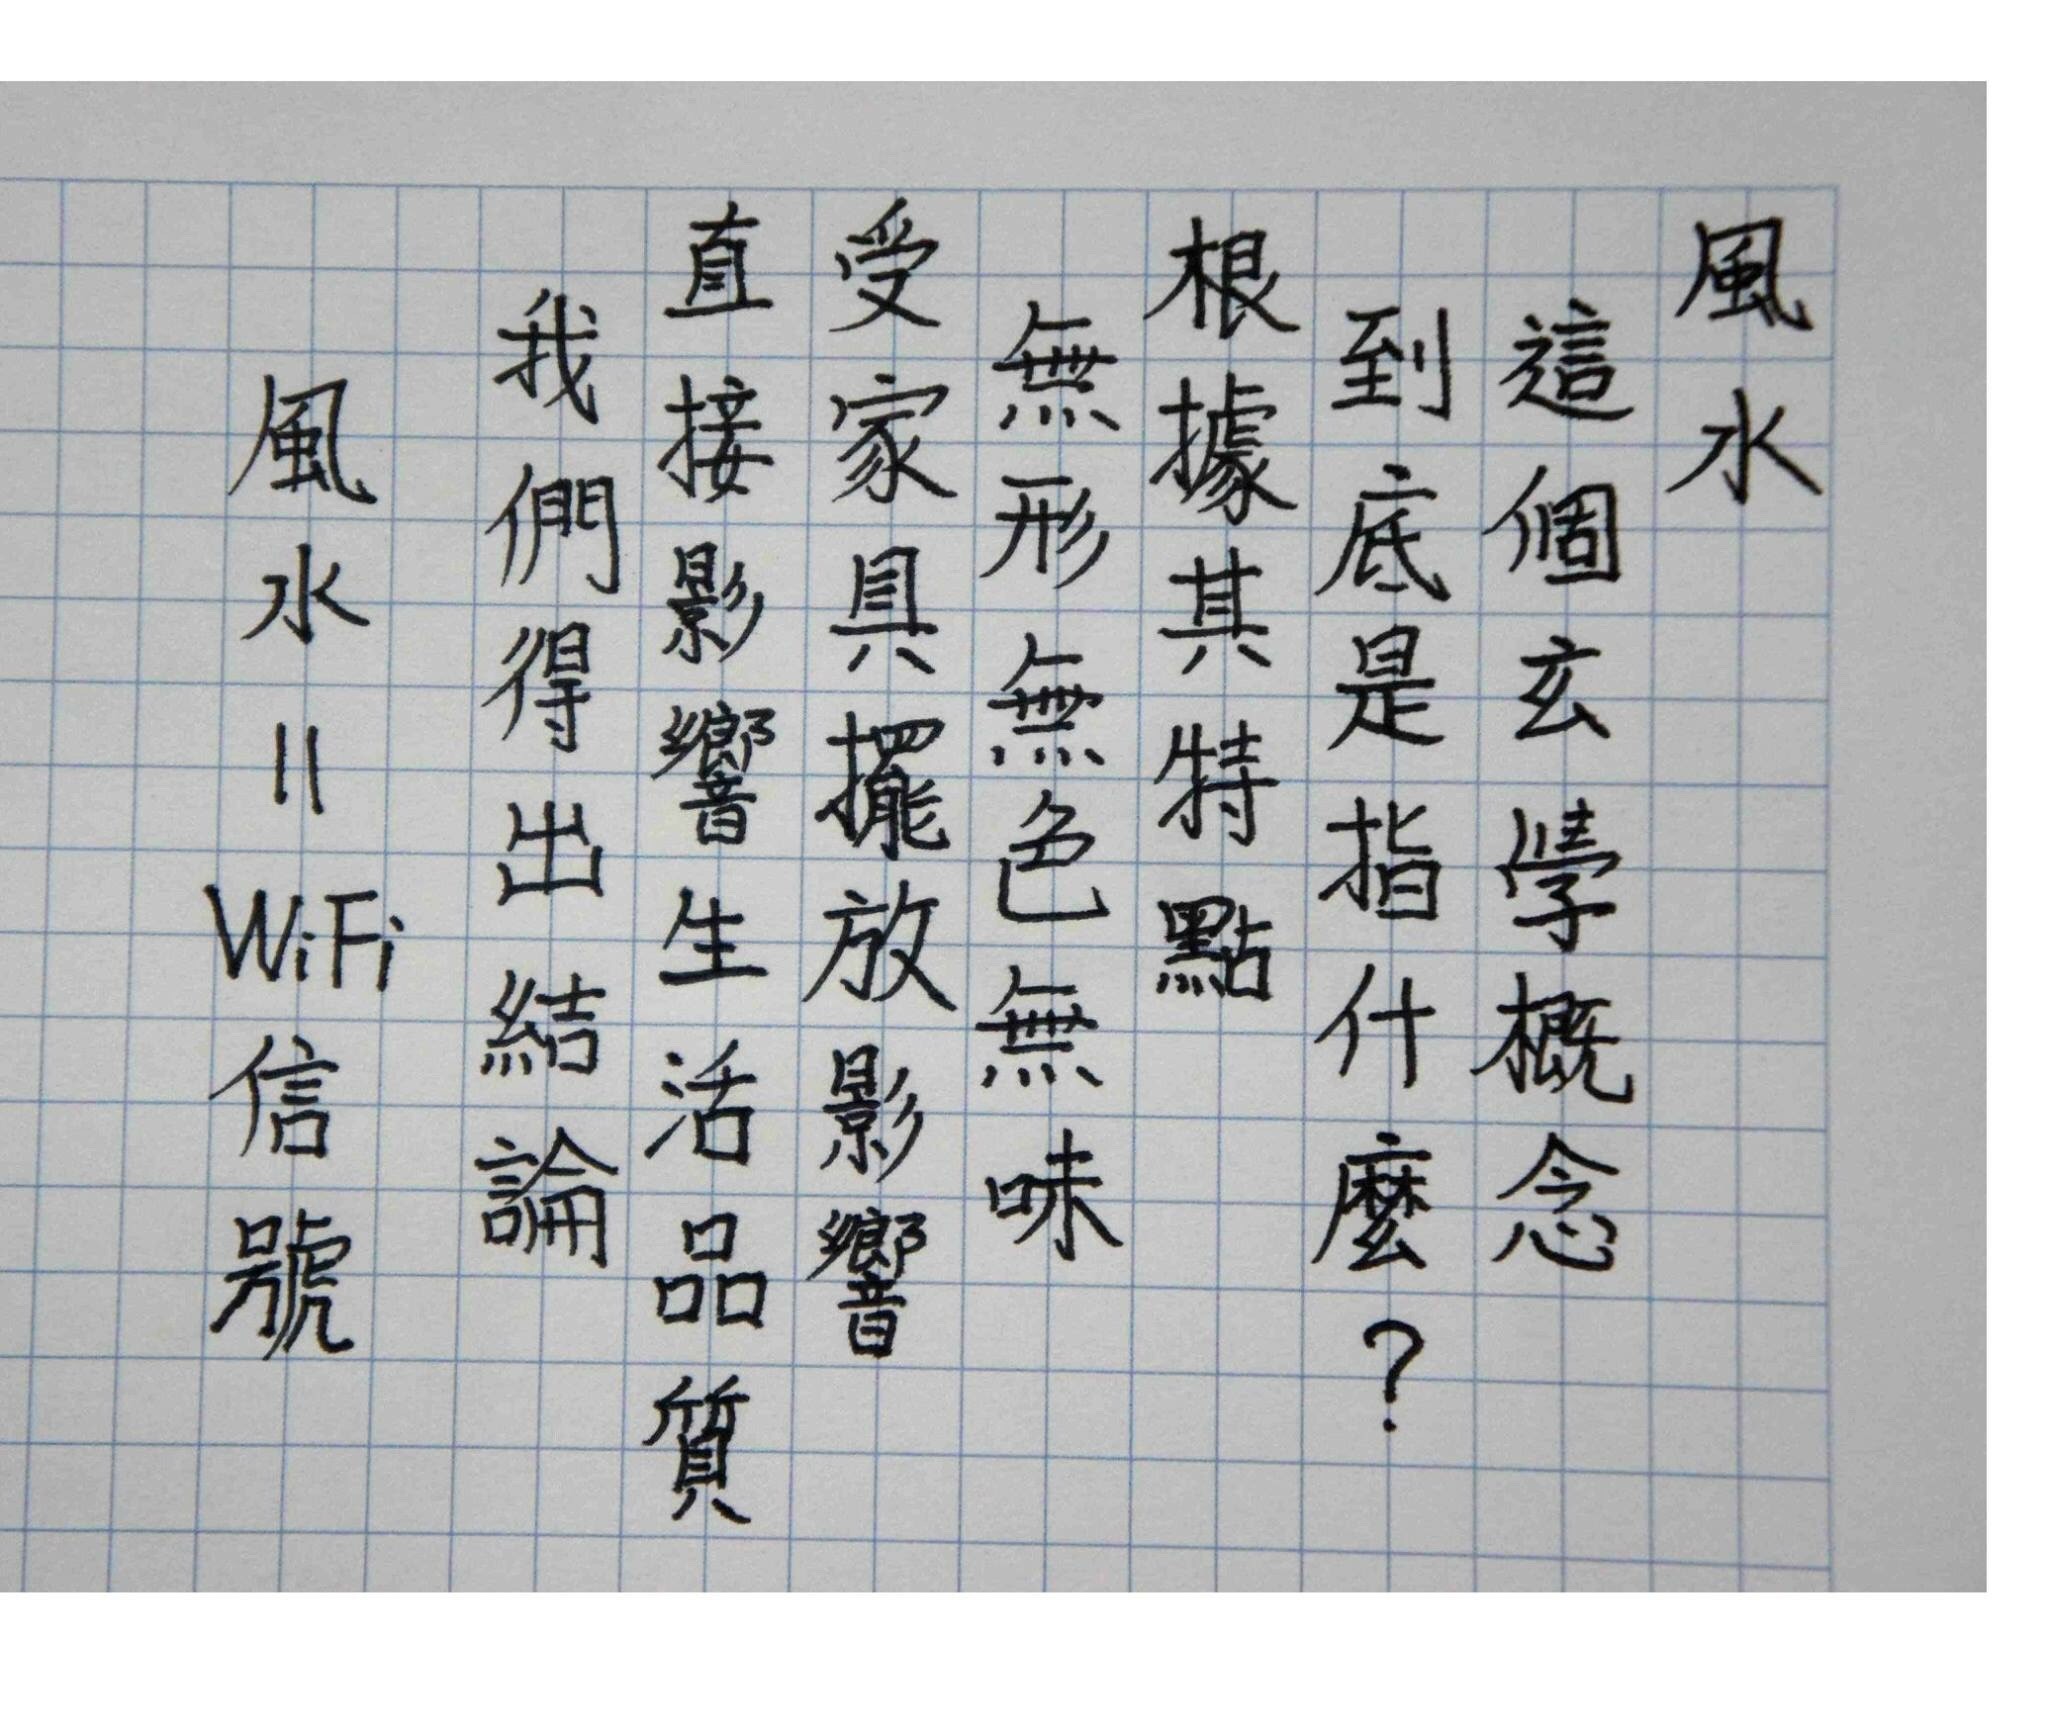 風水
這個玄學概念
到底是指什麼？
根據其特點
無形無色無味
受家具擺放影響
直接影響生活品質
我們得出結論
風水=WiFi信號